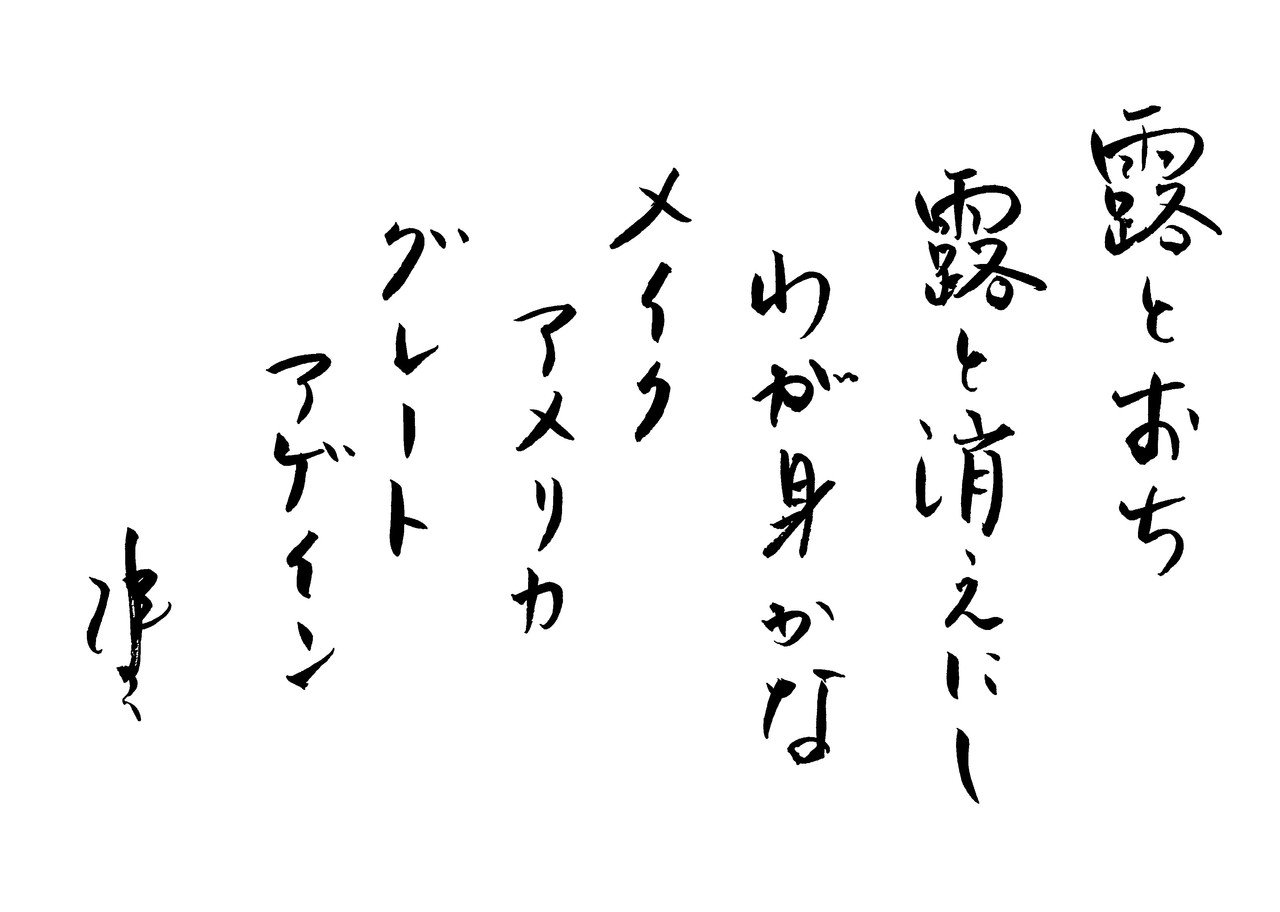 露とおち
露と消えにし
わが身かな
メイク
アメリカ
グレート
アゲイン